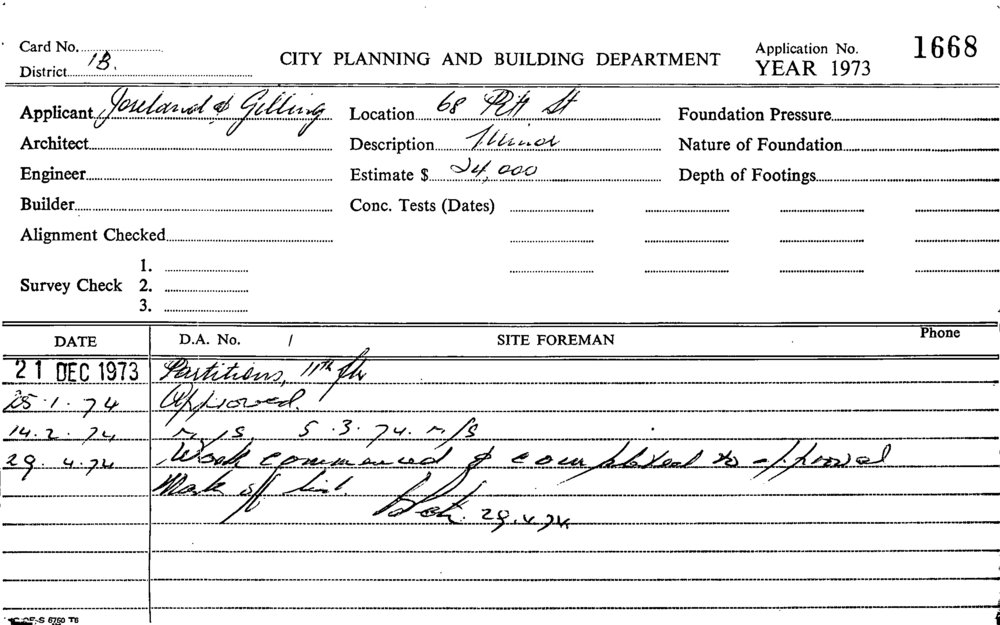 Card No.
District 1B.
CITY PLANNING AND BUILDING DEPARTMENT
Application No.
YEAR 1973
1668
Applicant Joseland & Gilling
Location 68 Pitt St
Foundation Pressure
Architect
Description Minor
Nature of Foundation
Engineer
Estimate $ 24,000
Depth of Footings
Builder
Conc. Tests (Dates)
Alignment Checked
Survey Check
1.
2.
3.
DATE
D.A. No. /
SITE FOREMAN
Phone
21 DEC 1973 Partitions, 11th flr
25.1.74 Approved.
14.2.74 n/s, 5.3.74. n/s
29.4.74 Work commenced & completed to approval
Mark off list.
29.4.74